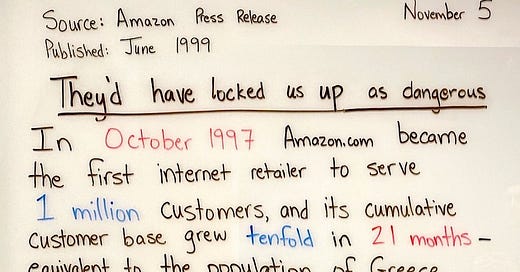 Source: Amazon Press Release
November 5
Published: June 1999
They'd have locked us up as dangerous
In October 1997 Amazon.com became
the first internet retailer to serve
1 million customers, and its cumulative
customer base grew tenfold in 21 months –
equivalent to the population of Greece